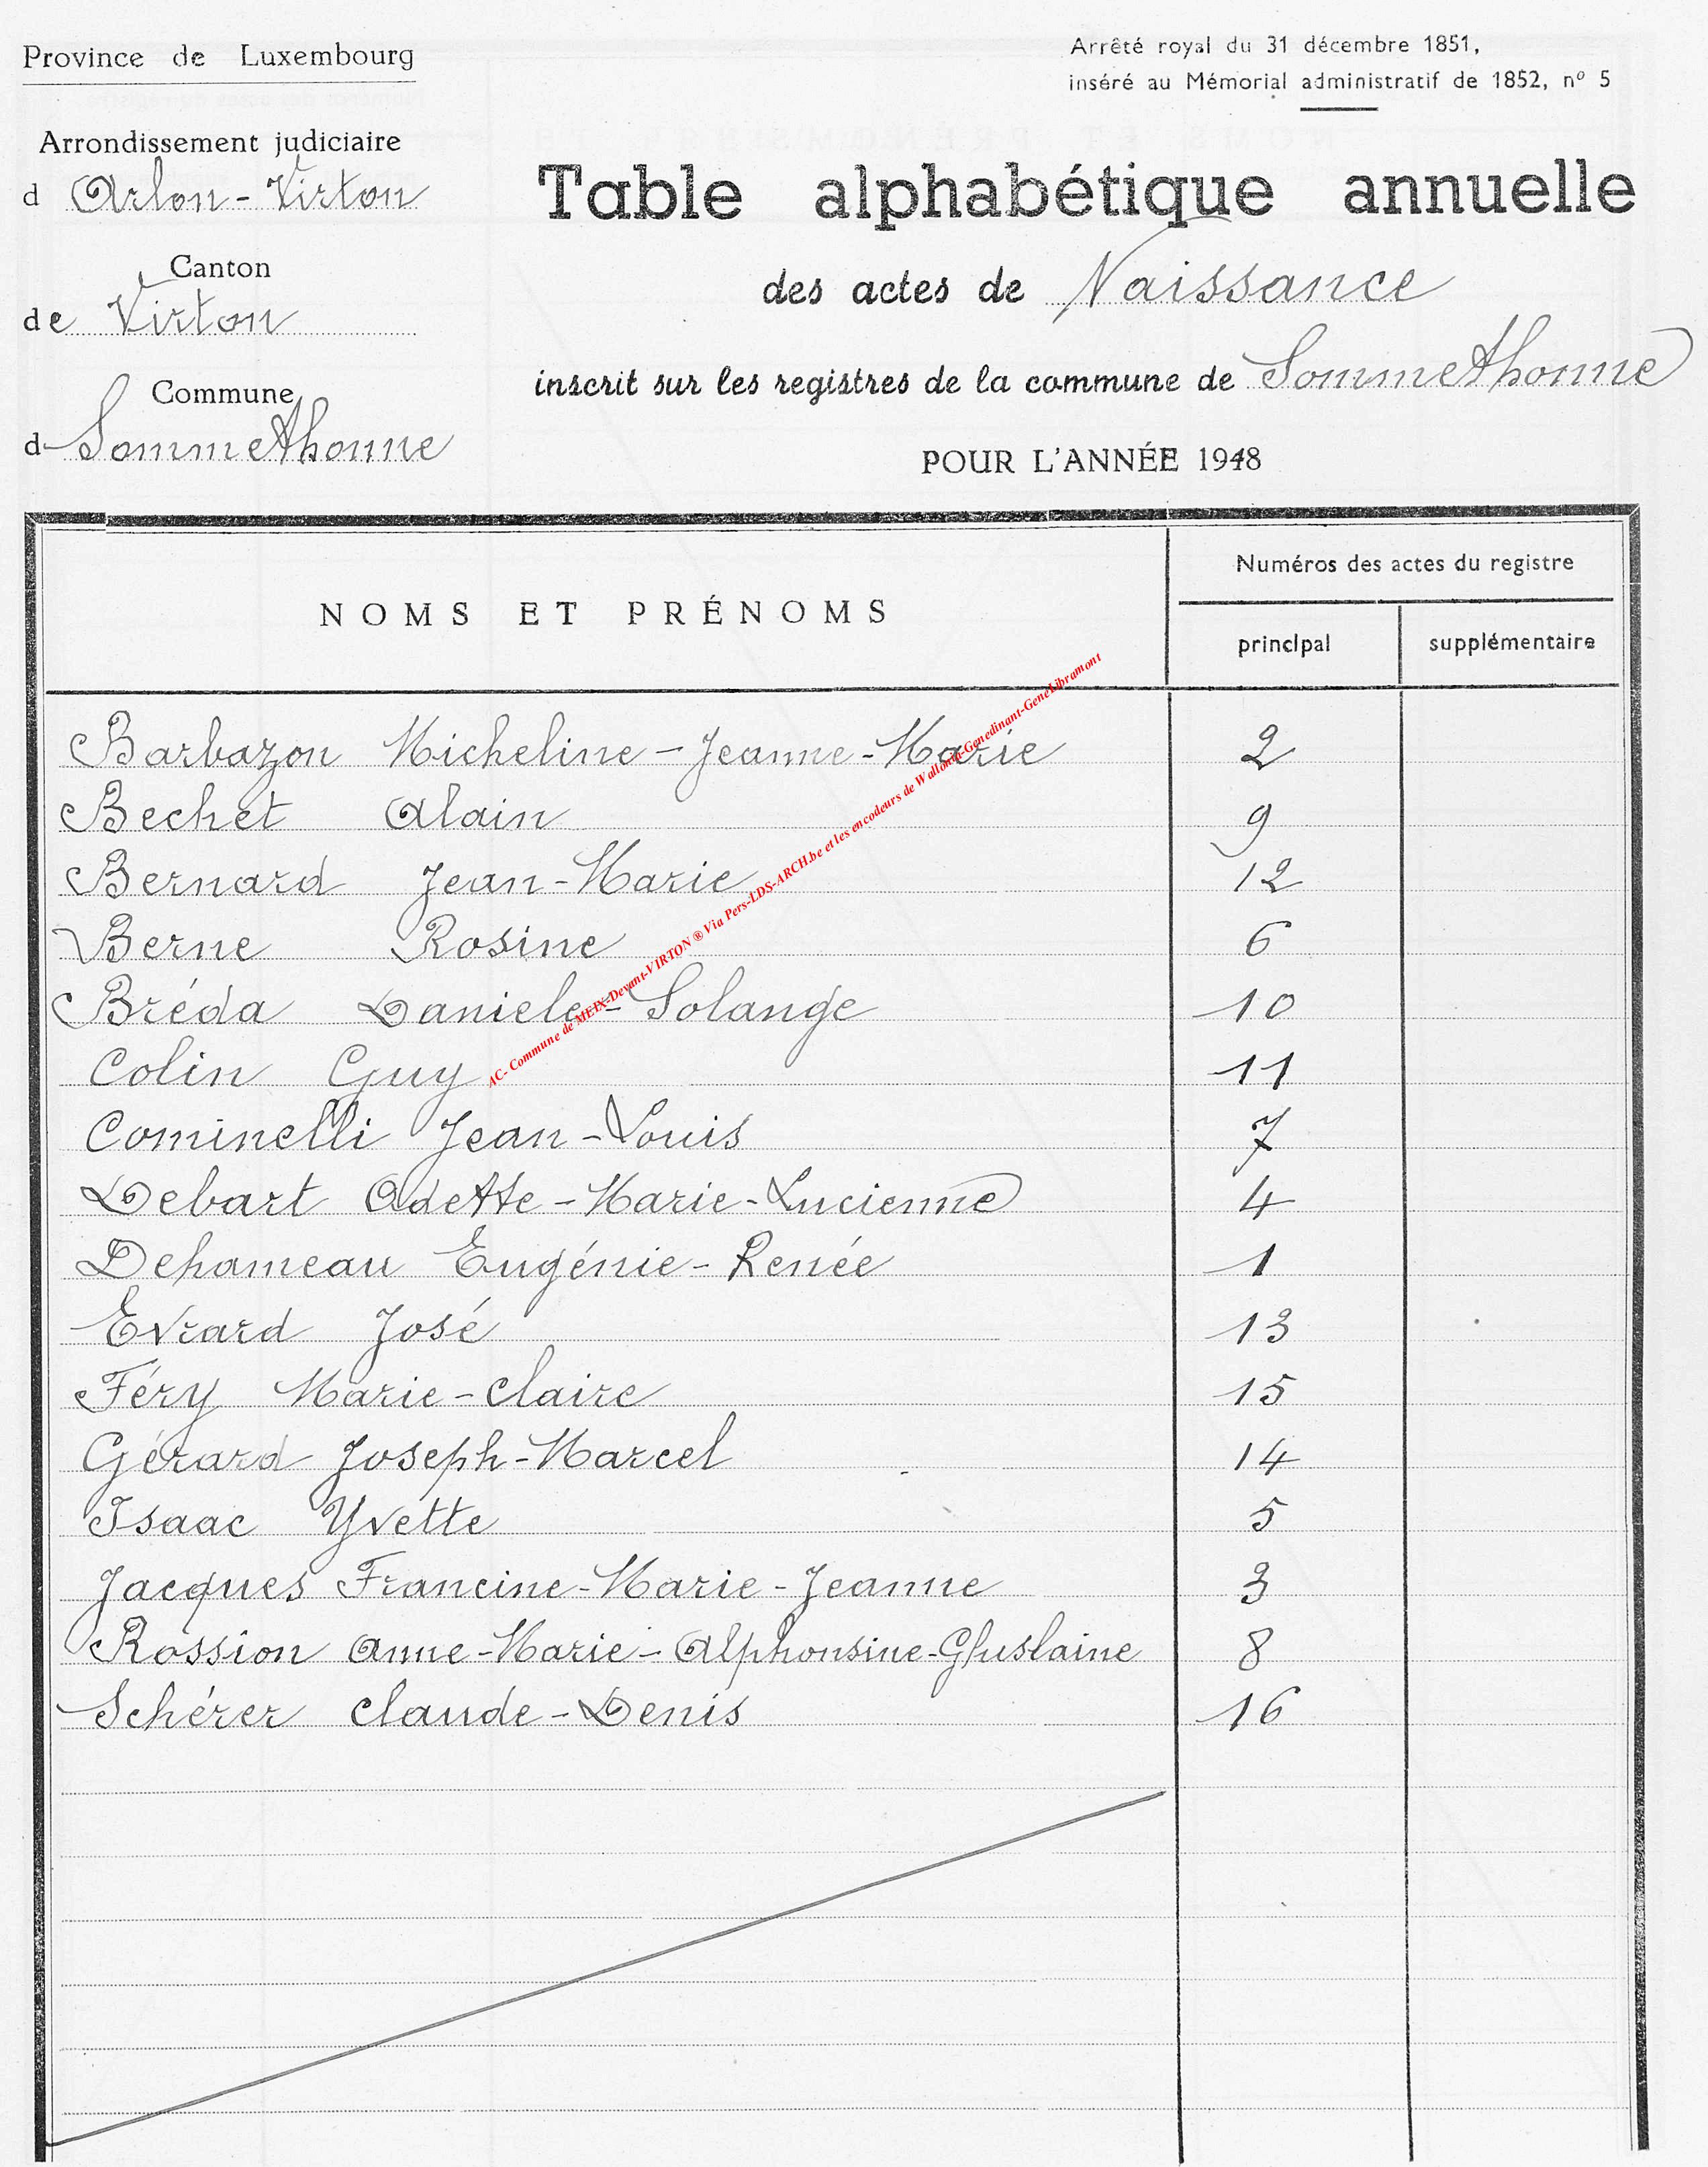 Province de Luxembourg
Arrêté royal du 31 décembre 1851,
inséré au Mémorial administratif de 1852, nº 5
Arrondissement judiciaire
d Arlon-Virton
Table alphabétique annuelle
Canton
de Virton
des actes de Naissance
inscrit sur les registres de la commune de Sommethonne
Commune
d Sommethonne
POUR L'ANNÉE 1948
NOMS ET PRÉNOMS
Numéros des actes du registre
principal supplémentaire
Barbazon Micheline-Jeanne-Marie 2
Bechet Alain 9
Bernard Jean-Marie 12
Berne Rosine 6
Bréda Daniele-Solange 10
Colin Guy 11
Cominelli Jean-Louis 7
Debart Odette-Marie-Lucienne 4
Dehameau Eugénie-Renée 1
Evrard José 13
Féry Marie-Claire 15
Gérard Joseph-Marcel 14
Isaac Yvette 5
Jacques Francine-Marie-Jeanne 3
Rossion Anne-Marie-Alphonsine-Ghuslaine 8
Schérer Claude-Denis 16
AC- Commune de MEIX-Devant-VIRTON ® Via Pers-LDS-ARCH.be et les encodeurs de Wallonia-Genedinant-GeneLibramont